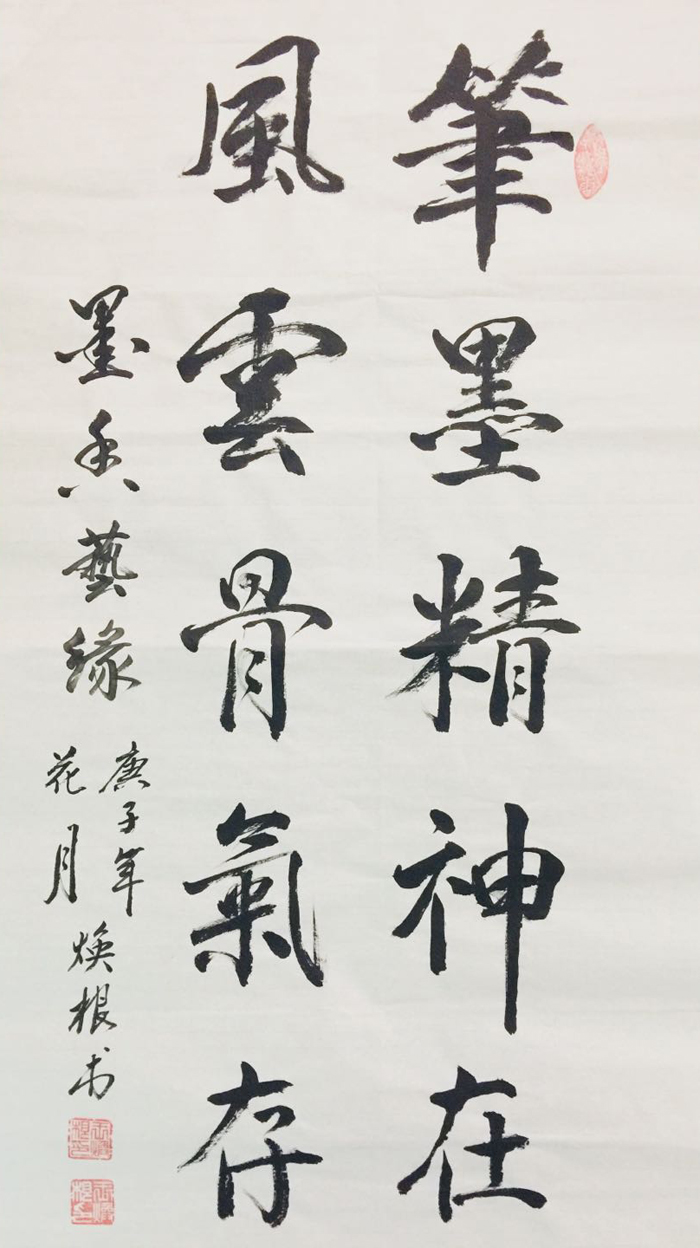 筆墨精神在
風雲骨氣存
墨香藝緣
庚子年
花月
煥根书